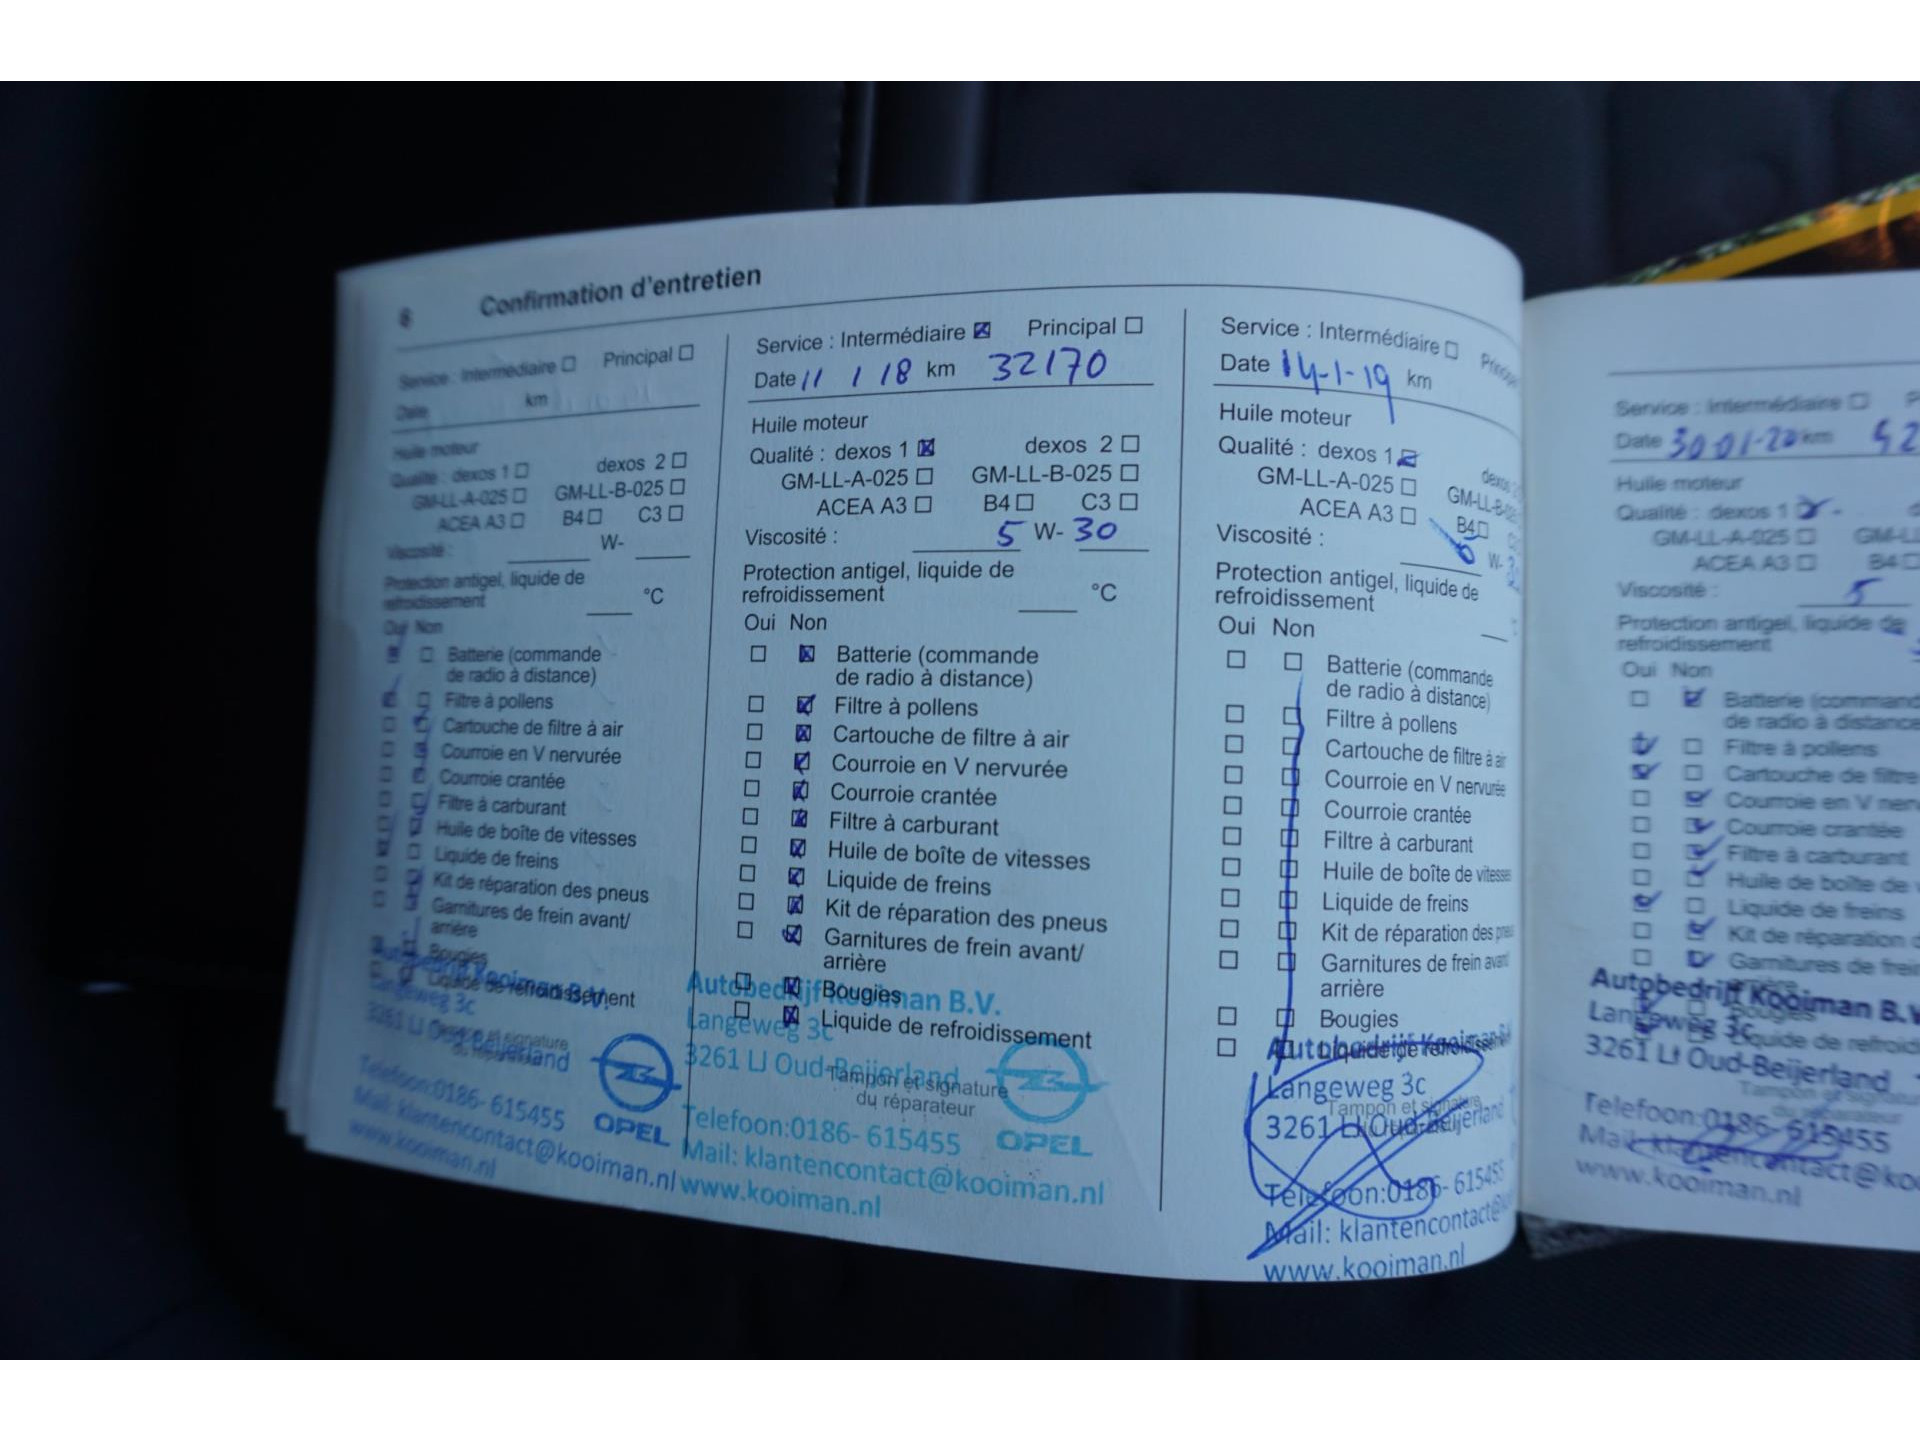 6 Confirmation d'entretien
Service : Intermédiaire ☐ Principal ☐
Date km
Huile moteur
Qualité : dexos 1 ☐ dexos 2 ☐
GM-LL-A-025 ☐ GM-LL-B-025 ☐
ACEA A3 ☐ B4 ☐ C3 ☐
Viscosité : W-
Protection antigel, liquide de
refroidissement °C
Oui Non
Batterie (commande
de radio à distance)
Filtre à pollens
Cartouche de filtre à air
Courroie en V nervurée
Courroie crantée
Filtre à carburant
Huile de boîte de vitesses
Liquide de freins
Kit de réparation des pneus
Garnitures de frein avant/
arrière
Bougies
Liquide de refroidissement
Tampon et signature
du réparateur
Autobedrijf Kooiman B.V.
Langeweg 3c
3261 LJ Oud-Beijerland
OPEL
Telefoon:0186- 615455
Mail: klantencontact@kooiman.nl
www.kooiman.nl
Service : Intermédiaire ☒ Principal ☐
Date 11 1 18 km 32170
Huile moteur
Qualité : dexos 1 ☒ dexos 2 ☐
GM-LL-A-025 ☐ GM-LL-B-025 ☐
ACEA A3 ☐ B4 ☐ C3 ☐
Viscosité : 5 W- 30
Protection antigel, liquide de
refroidissement °C
Oui Non
☐ ☒ Batterie (commande
de radio à distance)
☐ ☒ Filtre à pollens
☐ ☒ Cartouche de filtre à air
☐ ☒ Courroie en V nervurée
☐ ☒ Courroie crantée
☐ ☒ Filtre à carburant
☐ ☒ Huile de boîte de vitesses
☐ ☒ Liquide de freins
☐ ☒ Kit de réparation des pneus
☐ ☒ Garnitures de frein avant/
arrière
☐ ☒ Bougies
☐ ☒ Liquide de refroidissement
Tampon et signature
du réparateur
Autobedrijf Kooiman B.V.
Langeweg 3c
3261 LJ Oud-Beijerland
OPEL
Telefoon:0186- 615455
Mail: klantencontact@kooiman.nl
www.kooiman.nl
Service : Intermédiaire ☐
Date 14-1-19 km
Huile moteur
Qualité : dexos 1 dexos
GM-LL-A-025 ☐ GM-LL-B-
ACEA A3 ☐ B4 ☐
Viscosité : W-
Protection antigel, liquide de
refroidissement
Oui Non
☐ ☐ Batterie (commande
de radio à distance)
☐ ☐ Filtre à pollens
☐ ☐ Cartouche de filtre à air
☐ ☐ Courroie en V nervurée
☐ ☐ Courroie crantée
☐ ☐ Filtre à carburant
☐ ☐ Huile de boîte de vitesses
☐ ☐ Liquide de freins
☐ ☐ Kit de réparation des pneus
☐ ☐ Garnitures de frein avant
arrière
☐ ☐ Bougies
☐ ☐ Liquide de refroidissement
Tampon et signature
Autobedrijf Kooiman
Langeweg 3c
3261 LJ Oud-Beijerland
Telefoon:0186- 615455
Mail: klantencontact@
www.kooiman.nl
Service : Intermédiaire ☐ P
Date 30 01-20 km 42
Huile moteur
Qualité : dexos 1
GM-LL-A-025 ☐ GM-LL
ACEA A3 ☐ B4 ☐
Viscosité : 5
Protection antigel, liquide de
refroidissement
Oui Non
Batterie (command
de radio à distance
Filtre à pollens
Cartouche de filtre
Courroie en V ner
Courroie crantée
Filtre à carburant
Huile de boîte de
Liquide de freins
Kit de réparation d
Garnitures de frei
Bougies
Liquide de refroid
Autobedrijf Kooiman B.V
Langeweg 3c
3261 LJ Oud-Beijerland
Telefoon:0186- 615455
Mail: klantencontact@ko
www.kooiman.nl